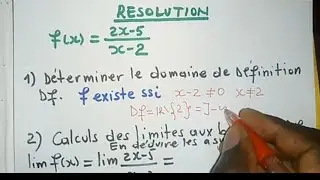 RESOLUTION
f(x) = 2x-5 / x-2
1) Déterminer le domaine de Définition
Df. f existe ssi x-2 ≠ 0 x ≠ 2
Df = IR\{2} = ]-
2) Calculs des limites aux b
En déduire les as
lim f(x) = lim 2x-5 / =